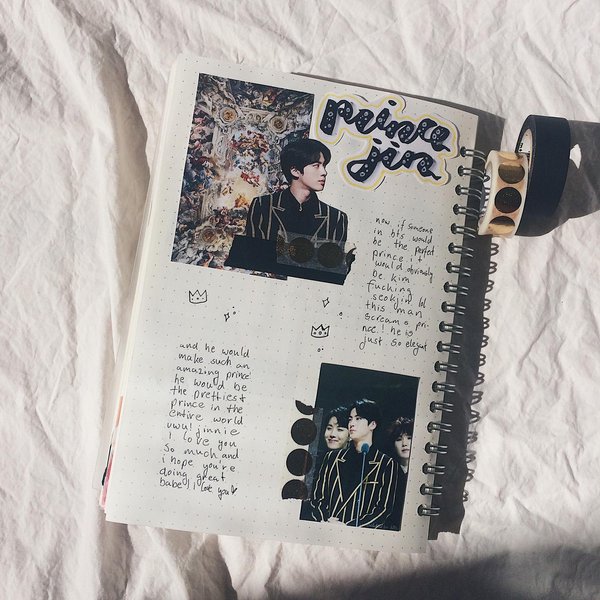 prince
jin
now if someone
in bts would
be the perfect
prince it
would obviously
be kim
fucking
seokjin lol
this man
screams pri-
nce! he is
just so elegant
and he would
make such an
amazing prince
he would be
the prettiest
prince in the
entire world
uwu! jinnie
I love you
so much and
i hope you're
doing great
babe! I love you